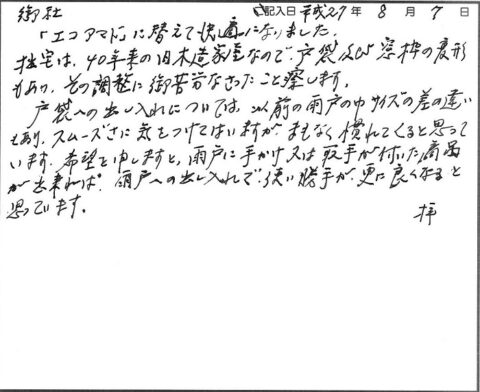 記入日 平成27年 8月 7日
御社
「エコアマド」に替えて快適になりました。
拙宅は、40年来の旧木造家屋なので、戸袋及び窓枠の変形
もあり、その調整に御苦労なさったこと察します。
戸袋への出し入れについては、以前の雨戸の巾サイズの差の違い
もあり、スムーズさに気をつけてはいますが、まもなく慣れてくると思って
います。希望を申しますと、雨戸に手かけ又は取手が付いた商品
が出来れば、雨戸への出し入れで使い勝手が、更に良くなると
思っています。
拝